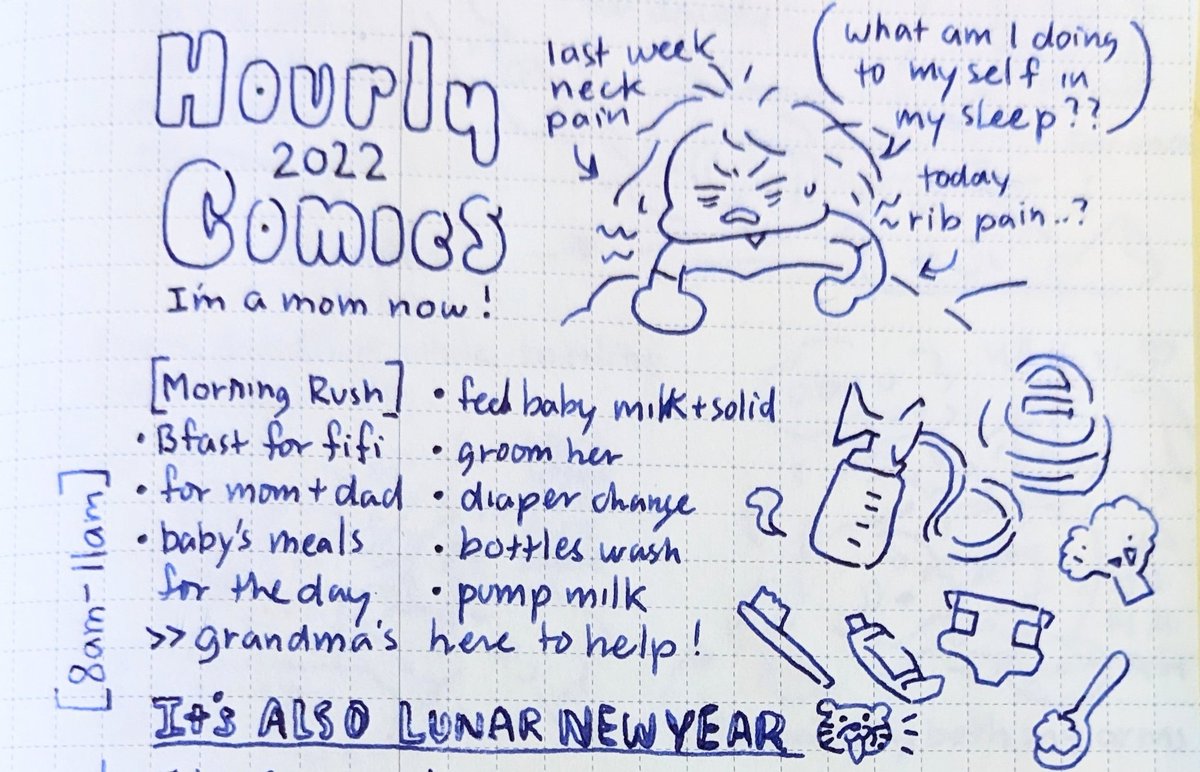 Hourly
2022
Comics
I'm a mom now!
last week
neck
pain
(what am I doing
to myself in
my sleep??)
today
rib pain..?
[8am-11am]
[Morning Rush]
• Bfast for fifi
• for mom + dad
• baby's meals
for the day
• feed baby milk + solid
• groom her
• diaper change
• bottles wash
• pump milk
>> grandma's here to help!
It's ALSO LUNAR NEW YEAR